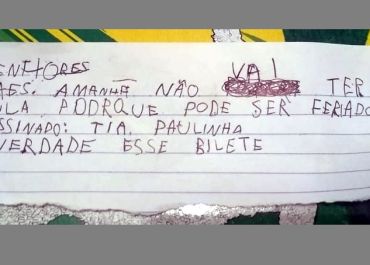 ENHORES
AES. AMANHÃ NÃO VAI TER
ULA. PODRQUE PODE SER FERIADO
SSINADO: TIA. PAULINHA
VERDADE ESSE BILETE